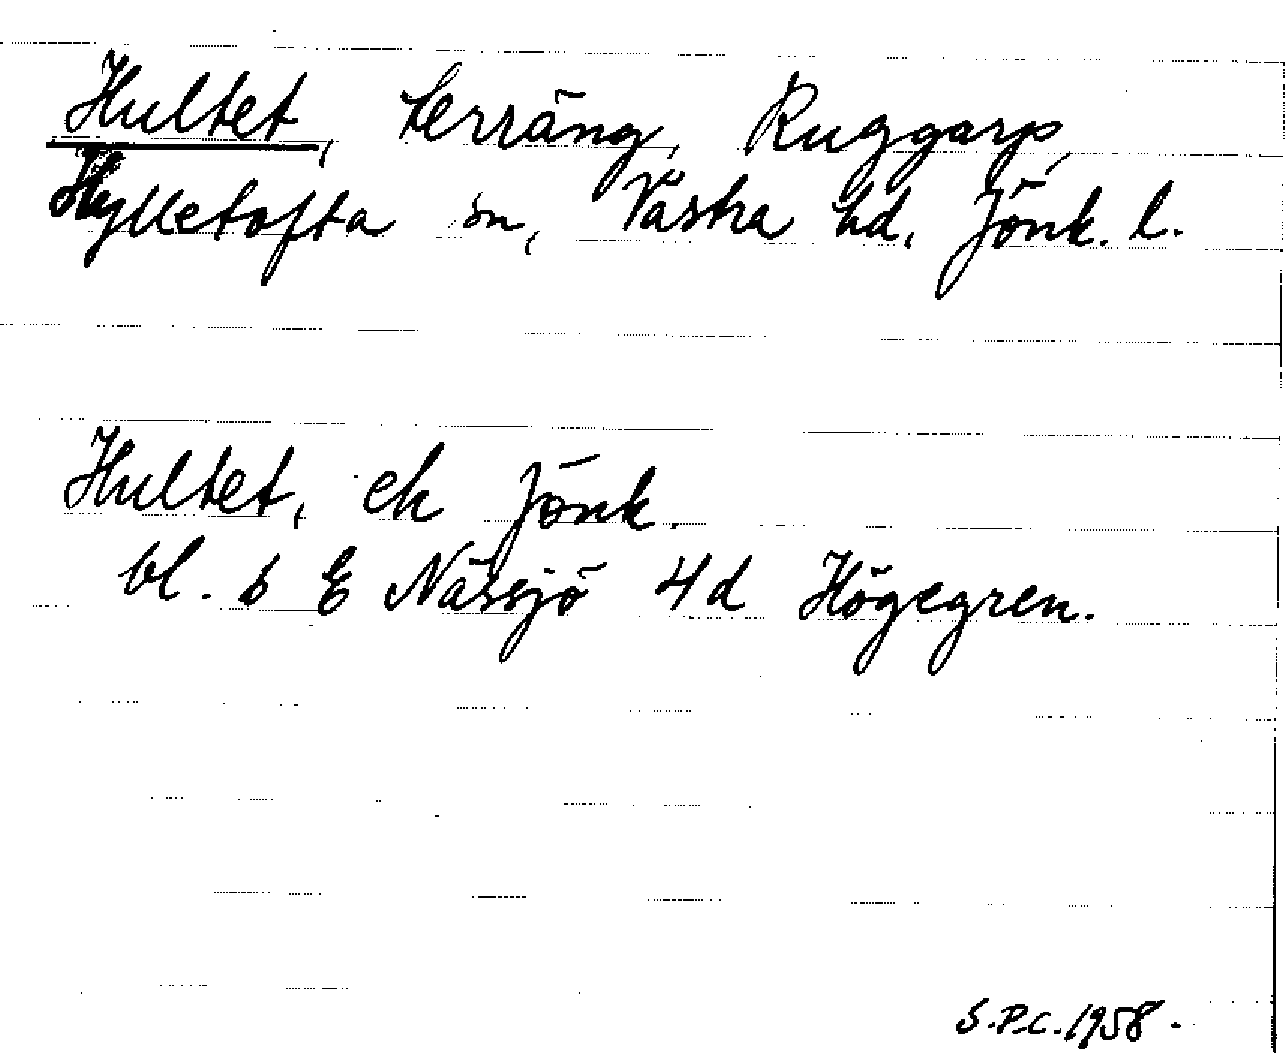 Hultet, terräng, Ruggarp,
Hylletofta sn, Västra hd, Jönk. l.
Hultet, ek Jönk.
bl. 6 E Nässjö 4d Högegren.
S.P.C. 1958.